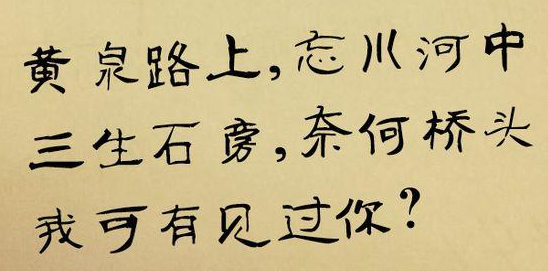 黄泉路上,忘川河中
三生石旁,奈何桥头
我可有见过你?